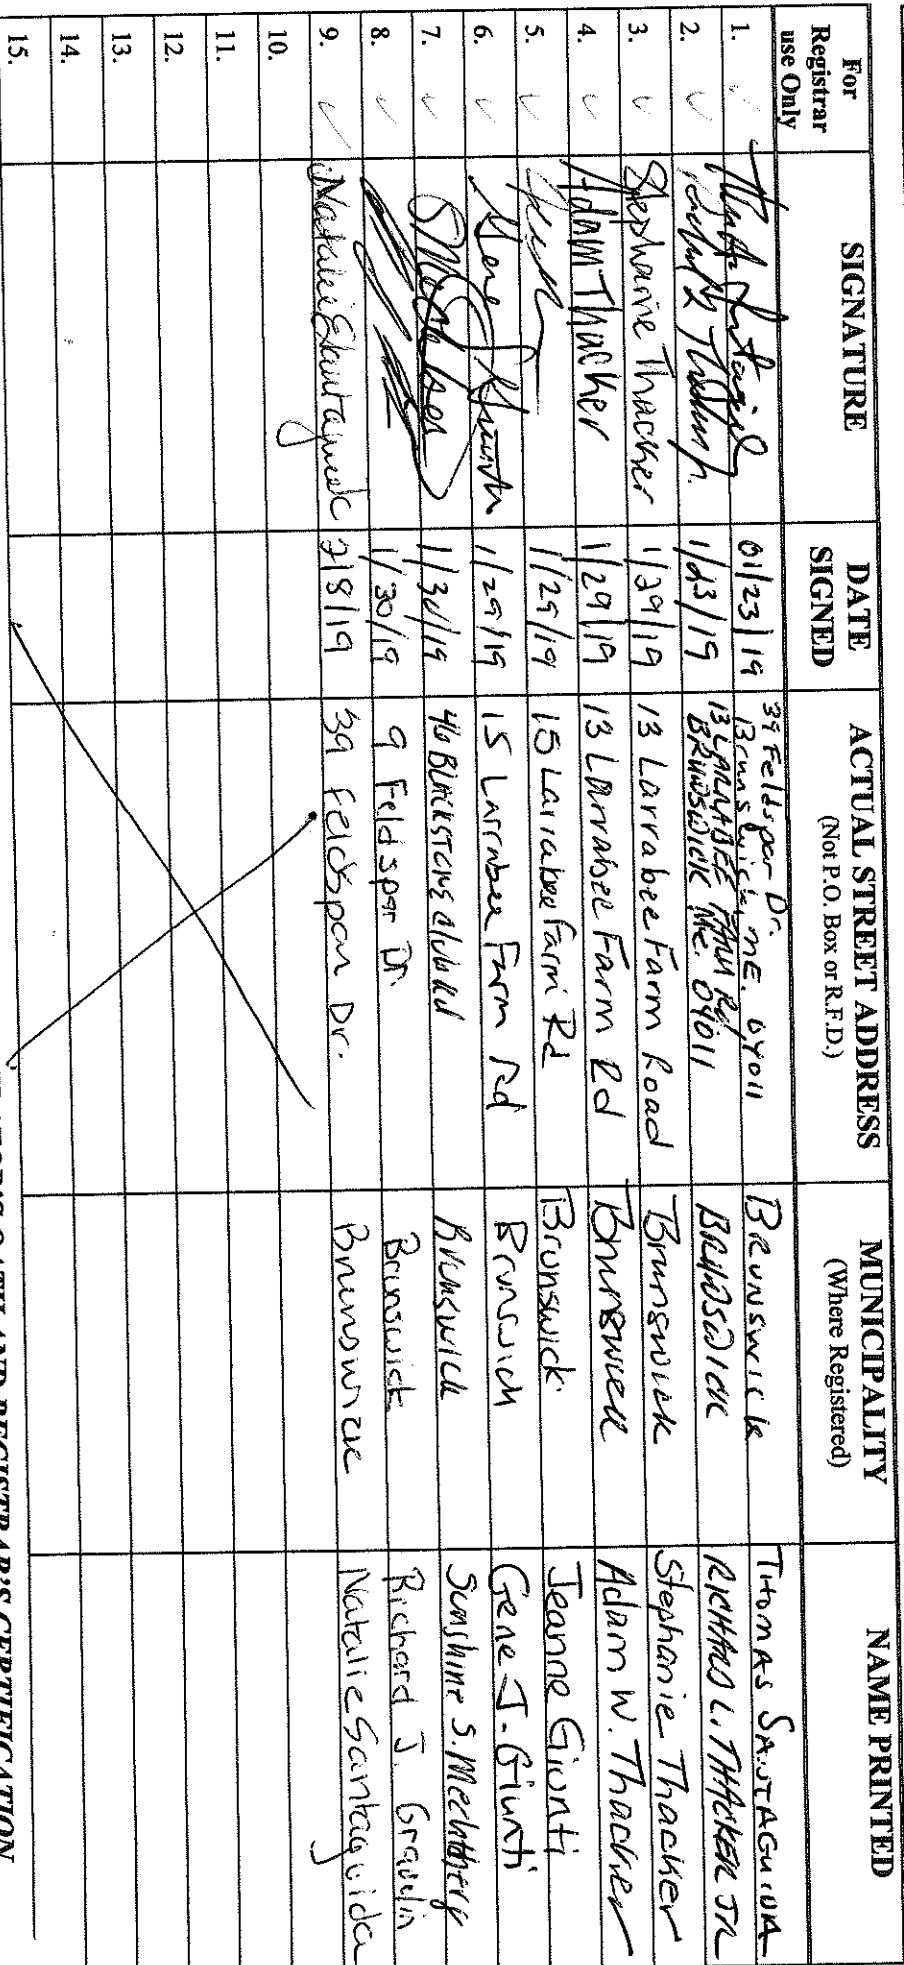 For Registrar use Only | SIGNATURE | DATE SIGNED | ACTUAL STREET ADDRESS (Not P.O. Box or R.F.D.) | MUNICIPALITY (Where Registered) | NAME PRINTED
1. | 01/23/19 | 39 Feldspar Dr. Brunswick, ME. 04011 | BRUNSWICK | THOMAS SANTAGUIDA
2. | 1/23/19 | 13 LARRABEE FARM Rd BRUNSWICK Me. 04011 | BRUNSWICK | RICHARD L. THACKER JR
3. | Stephanie Thacker | 1/29/19 | 13 Larrabee Farm Road | Brunswick | Stephanie Thacker
4. | Adam Thacker | 1/29/19 | 13 Larrabee Farm Rd | Brunswick | Adam W. Thacker
5. | 1/29/19 | 15 Larrabee Farm Rd | Brunswick | Jeanne Giunti
6. | Gene J Giunti | 1/29/19 | 15 Larrabee Farm Rd | Brunswick | Gene J. Giunti
7. | 1/30/19 | 46 BLACKSTONE club Rd | Brunswick | Sunshine S.
8. | 1/30/19 | 9 Feldspar Dr. | Brunswick | Richard J. Gravelin
9. | Natalie Santaguida | 2/8/19 | 39 Feldspar Dr. | Brunswick | Natalie Santaguida
10.
11.
12.
13.
14.
15.
OATH AND REGISTRAR'S CERTIFICATION